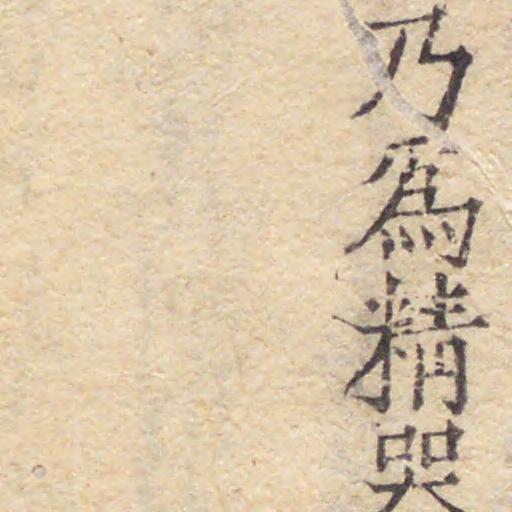 乃爲精哭